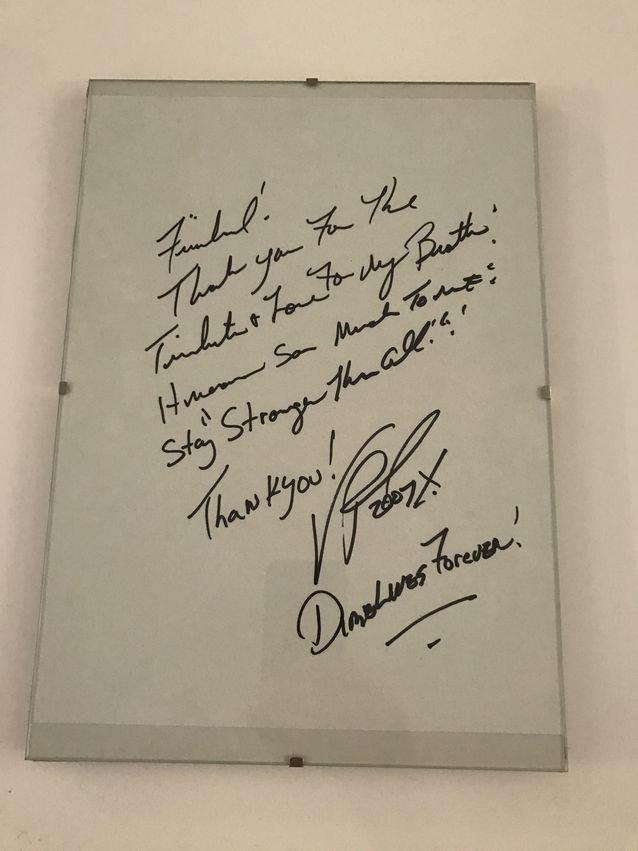 Thank you For The
Tribute & Love For My Brother!
It means Son Much To me!
Stay Stronger Than All!!!
Thank you!
VP 2007
Dime Lives Forever!